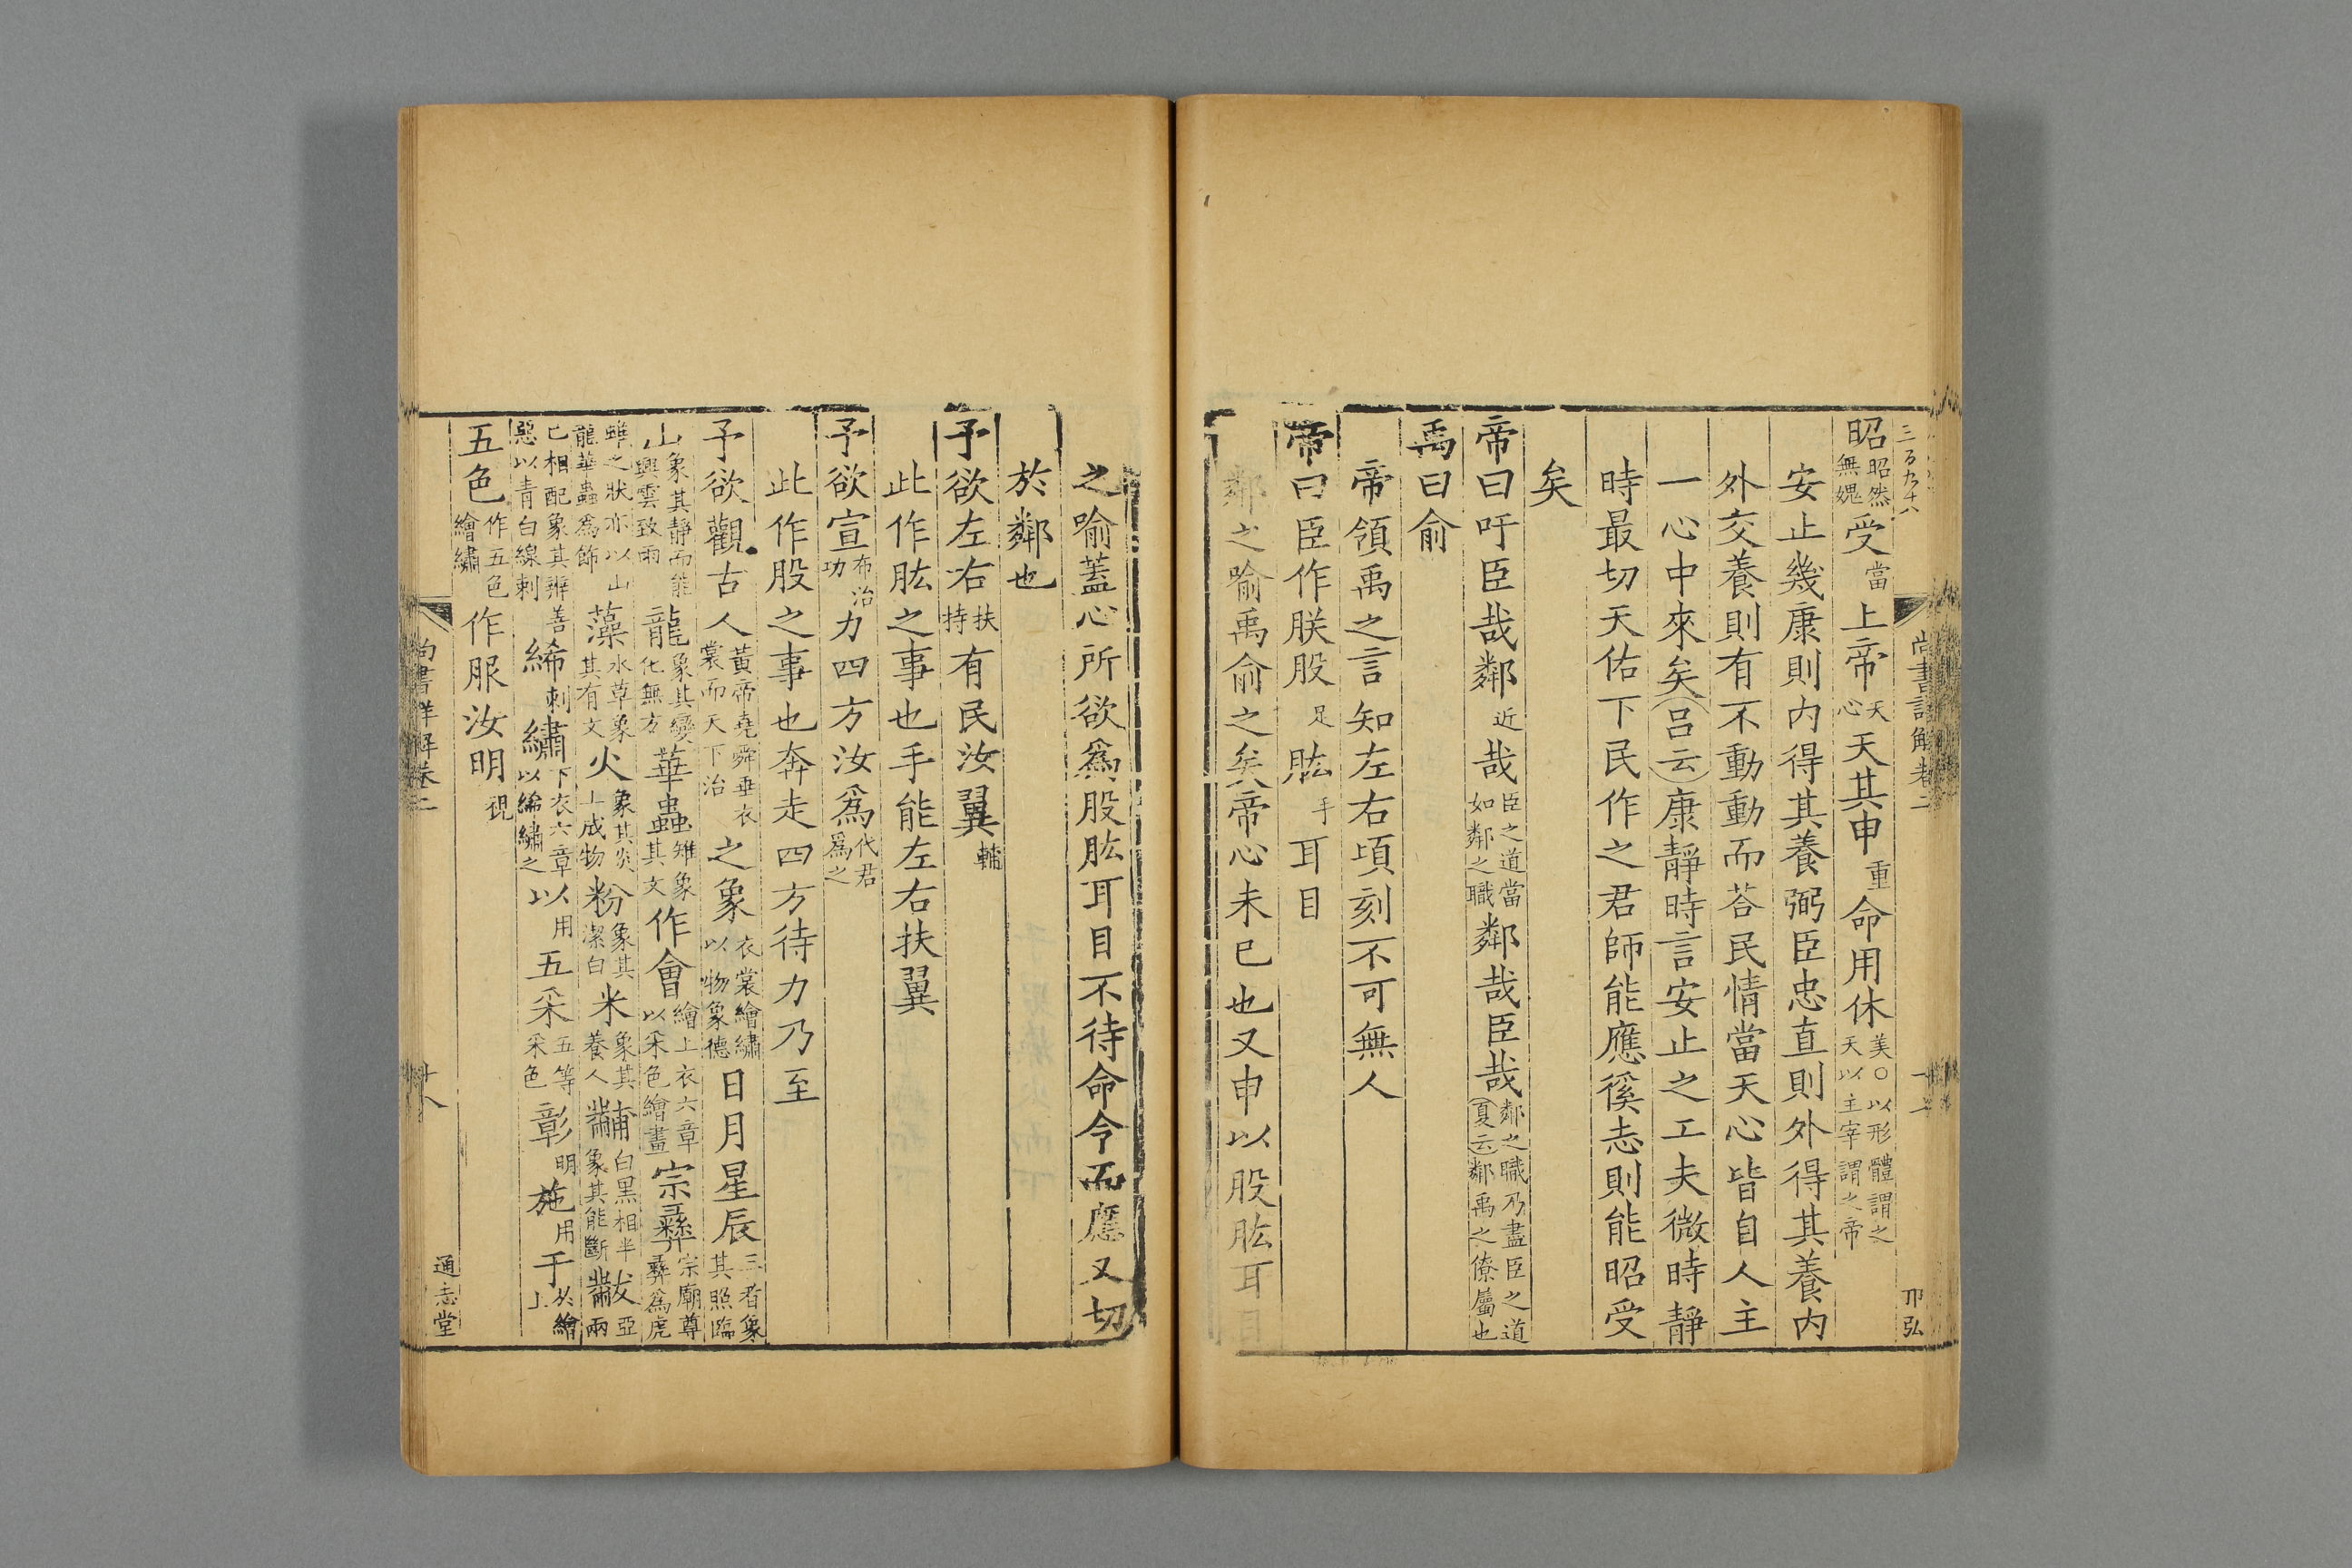 三百九十八
尚書詳解卷二
邛弘
昭昭然無媿受當上帝天心天其申重命用休美○以形體謂之天以主宰謂之帝
安止幾康則内得其養弼臣忠直則外得其養内
外交養則有不動動而荅民情當天心皆自人主
一心中來矣吕云康靜時言安止之工夫微時靜
時最切天佑下民作之君師能應徯志則能昭受
矣
帝曰吁臣哉鄰近哉臣之道當如鄰之職鄰哉臣哉鄰之職乃盡臣之道夏云鄰禹之僚屬也
禹曰俞
帝領禹之言知左右頃刻不可無人
帝曰臣作朕股足肱手耳目
鄰之喻禹俞之矣帝心未已也又申以股肱耳目
之喻蓋心所欲爲股肱耳目不待命令而應又切
於鄰也
予欲左右扶持有民汝翼輔
此作肱之事也手能左右扶翼
予欲宣布治功力四方汝爲代君爲之
此作股之事也奔走四方待力乃至
予欲觀古人黃帝堯舜垂衣裳而天下治之象衣裳繪繡以物象德日月星辰三者象其照臨
山象其靜而能興雲致雨龍象其變化無方華蟲雉象其文作會繪上衣六章以采色繪畫宗彝宗廟尊彝爲虎
蜼之狀亦以山龍華蟲爲飾藻水草象其有文火象其炎上成物粉象其潔白米象其養人黼白黑相半象其能斷黻亞兩
己相配象其辨善惡以青白線刺絺刺繡下衣六章以絺繡之以用五采五等采色彰明施用于於繪上
五色作五色繪繡作服汝明視
尚書詳解卷二
十八
通志堂